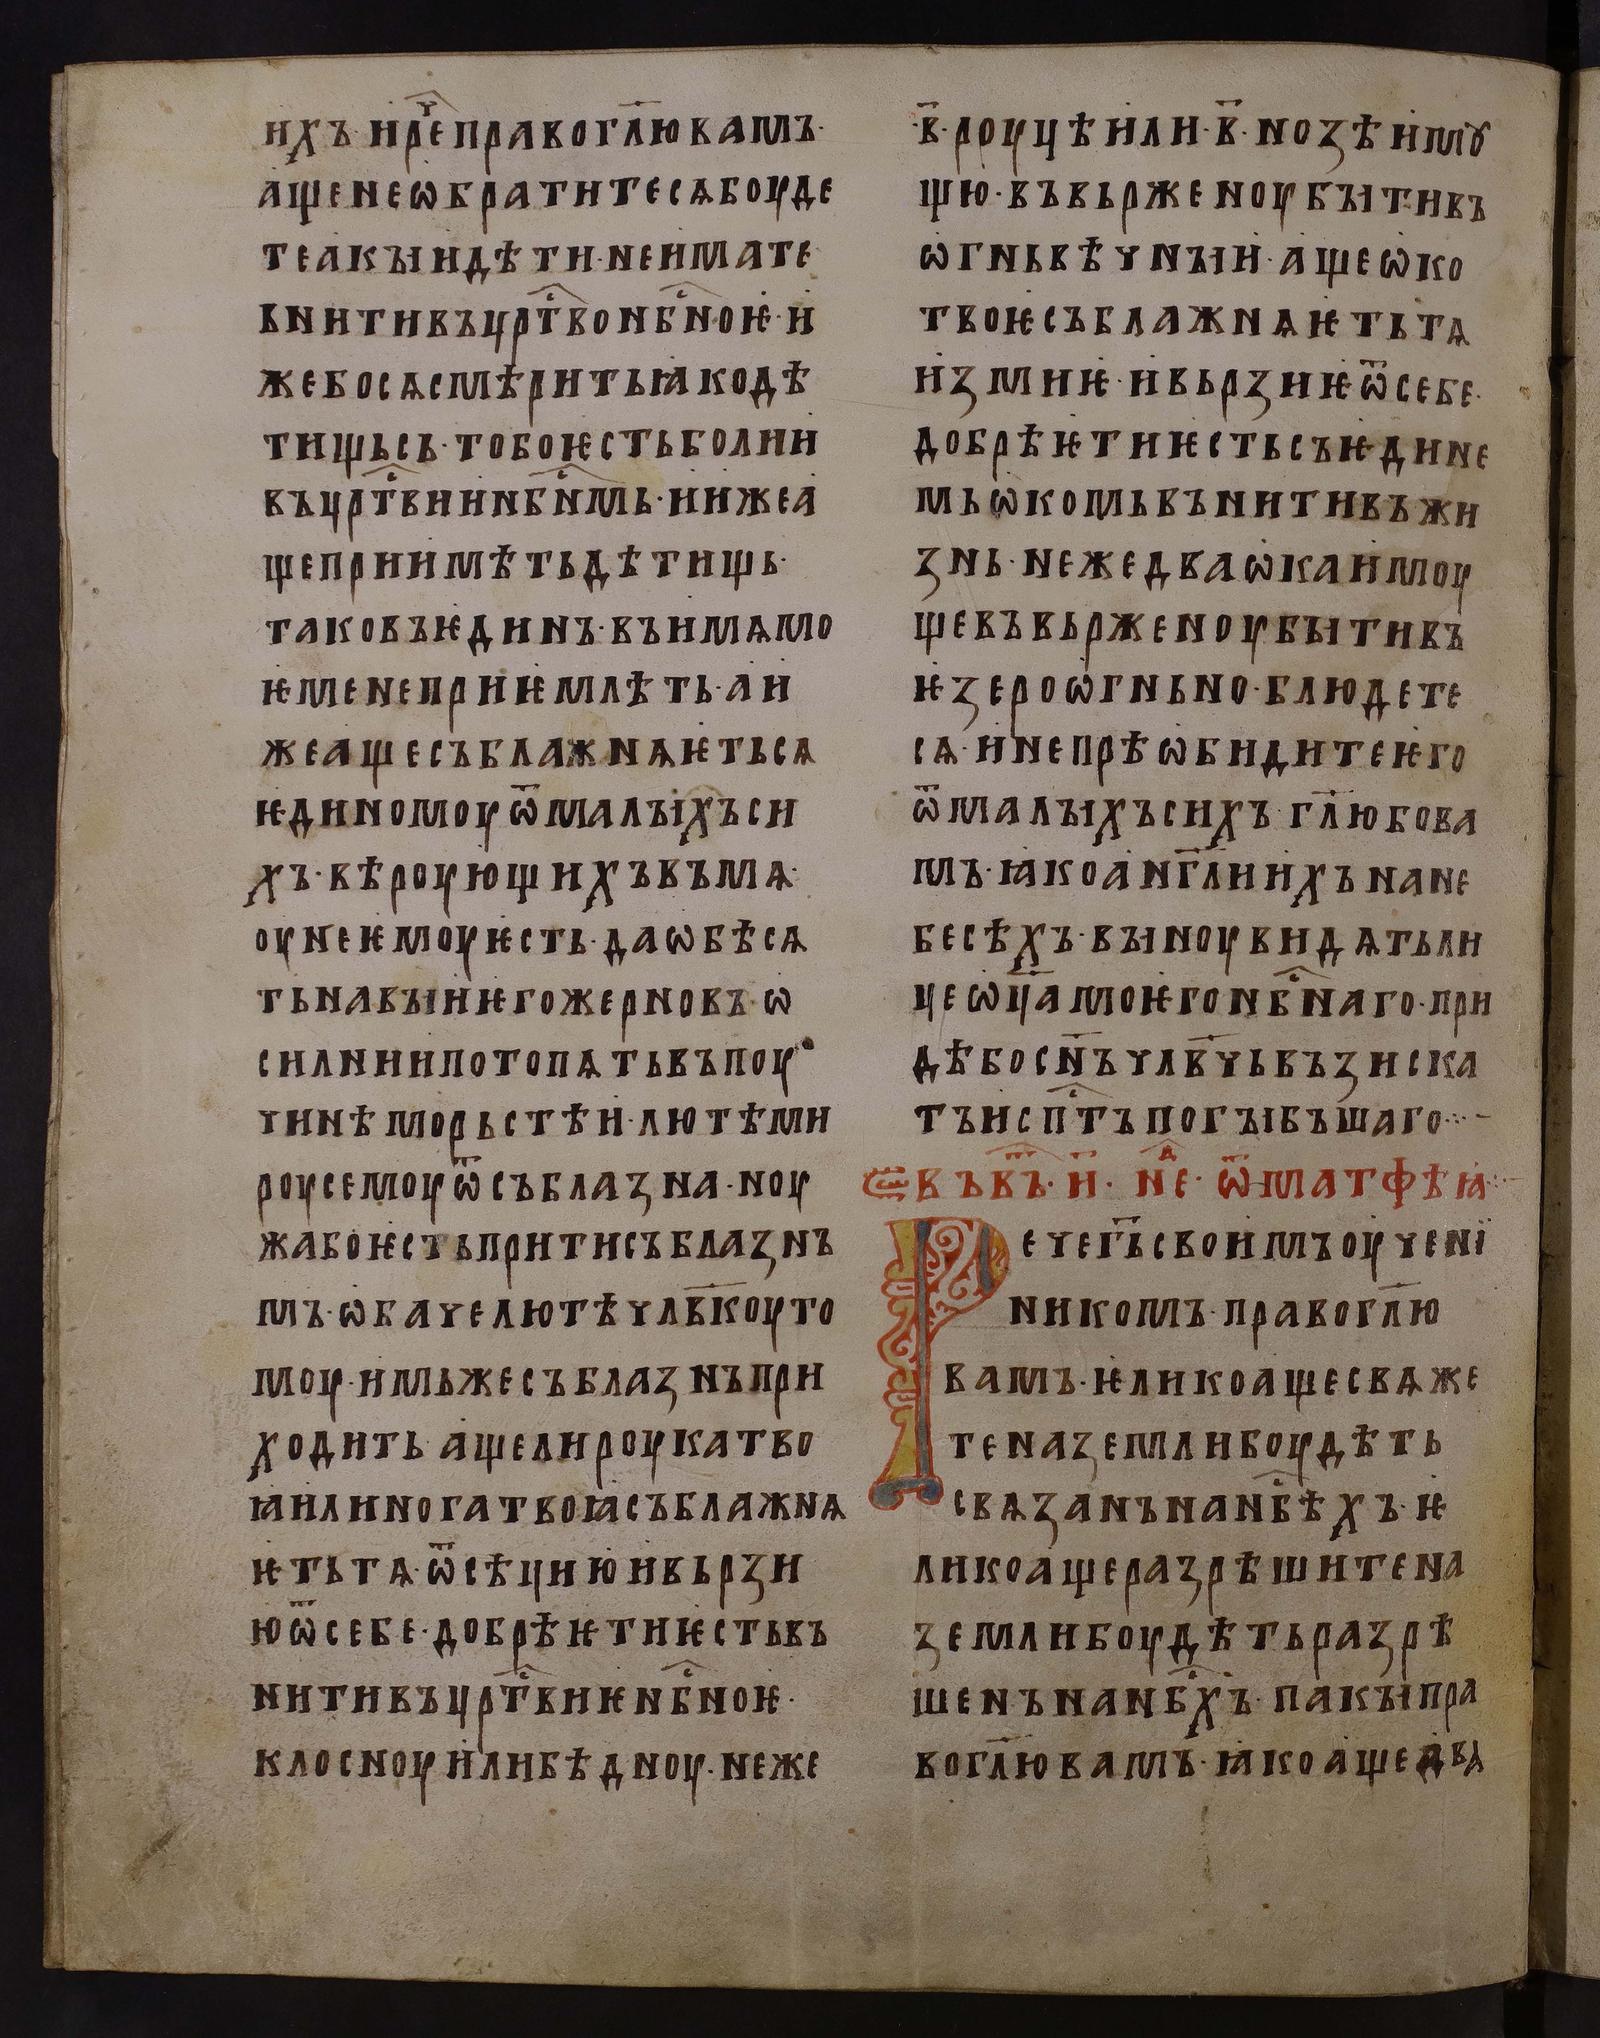 ихъ·ирⷱ҇еправоглю҃вамъ·
ащенеѡбратитесѧбоуде
теакыидѣти·неимате
внитивъцртⷭ҇вонбⷭ҇ноѥ·и
жебосѧсмѣритьꙗкодѣ
тищьсь·тобоѥстьболии
въцртⷭ҇виинбⷭ҇нмь·иижеа
щеприиметьдѣтищь·
таковъѥдинъ·въимѧмо
ѥменеприѥмлѣть·аи
жеащесъблажнѧѥтьсѧ
ѥдиномоуѿмалыхъси
хъ·вѣроующихъвъмѧ·
оунеѥмоуѥсть·даѡбѣсѧ
тьнавыиѥгожерновъѡ
силнииипотопѧтьвъпоу
чинѣморьстѣи·лютѣми
роусемоуѿсъблазна·ноу
жабоѥстьпритисъблазнъ
мъ·ѡбачелютѣчлв҃коуто
моу·имьжесъблазнъпри
ходитьащелироукатво
ꙗилиногатвоꙗсъблажнѧ
ѥтьтѧ·ѿсѣциюивьрзи
юѿсебе·добрѣѥтиѥстьвъ
нитивъцртⷭ҇виѥнбⷭ҇ноѥ·
клосноуилибѣдноу·неже
·в҃·роуцѣили·в҃·нозѣимꙋ
щю·въвьрженоубытивъ
ѡгньвѣчныи·ащеѡко
твоѥсъблажнѧѥтьтѧ
измиѥ·ивьрзиѥѿсебе·
добрѣѥтиѥстьсъѥдине
мьѡкомьвънитивъжи
знь·нежедваѡкаимоу
щевъвьрженоубытивъ
ѥзероѡгньно·блюдете
сѧ·инепрѣѡбидитеѥго
ѿмалыхъсихъ·глю҃бова
мъ·ꙗкоанг҃лиихъмане
бесѣхъ·выноувидѧтьли
цеѡц҃амоѥгонбⷭ҇наго·при
дѣбосн҃ъчлв҃чьвъзиска
тъиспⷭ҇тъпогыбъшаго·:·-
Євъв҃ъ·и҃·нⷣе·ѿматфѣꙗ·:·-
Речег҃ьсвоимъоучені
никомъ·правоглю҃
вамъ·ѥликоащесвѧже
теназемлибоудѣть
свѧзанънанбⷭ҇ѣхъ·ѥ
ликоащеразрѣшитена
землибоудѣтьразрѣ
шенънанбⷭ҇хъ·пакыпра
воглю҃вамъ·ꙗкоащедва